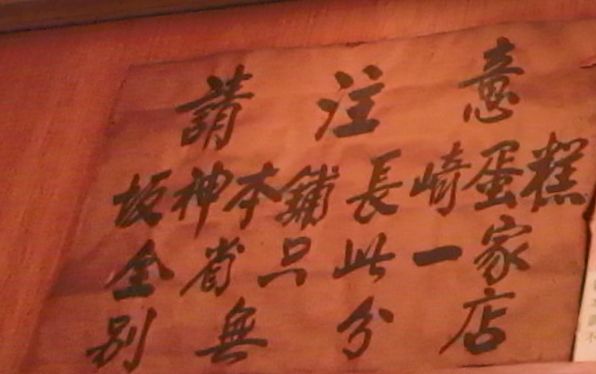 請注意
坂神本舖長崎蛋糕
全省只此一家
別無分店